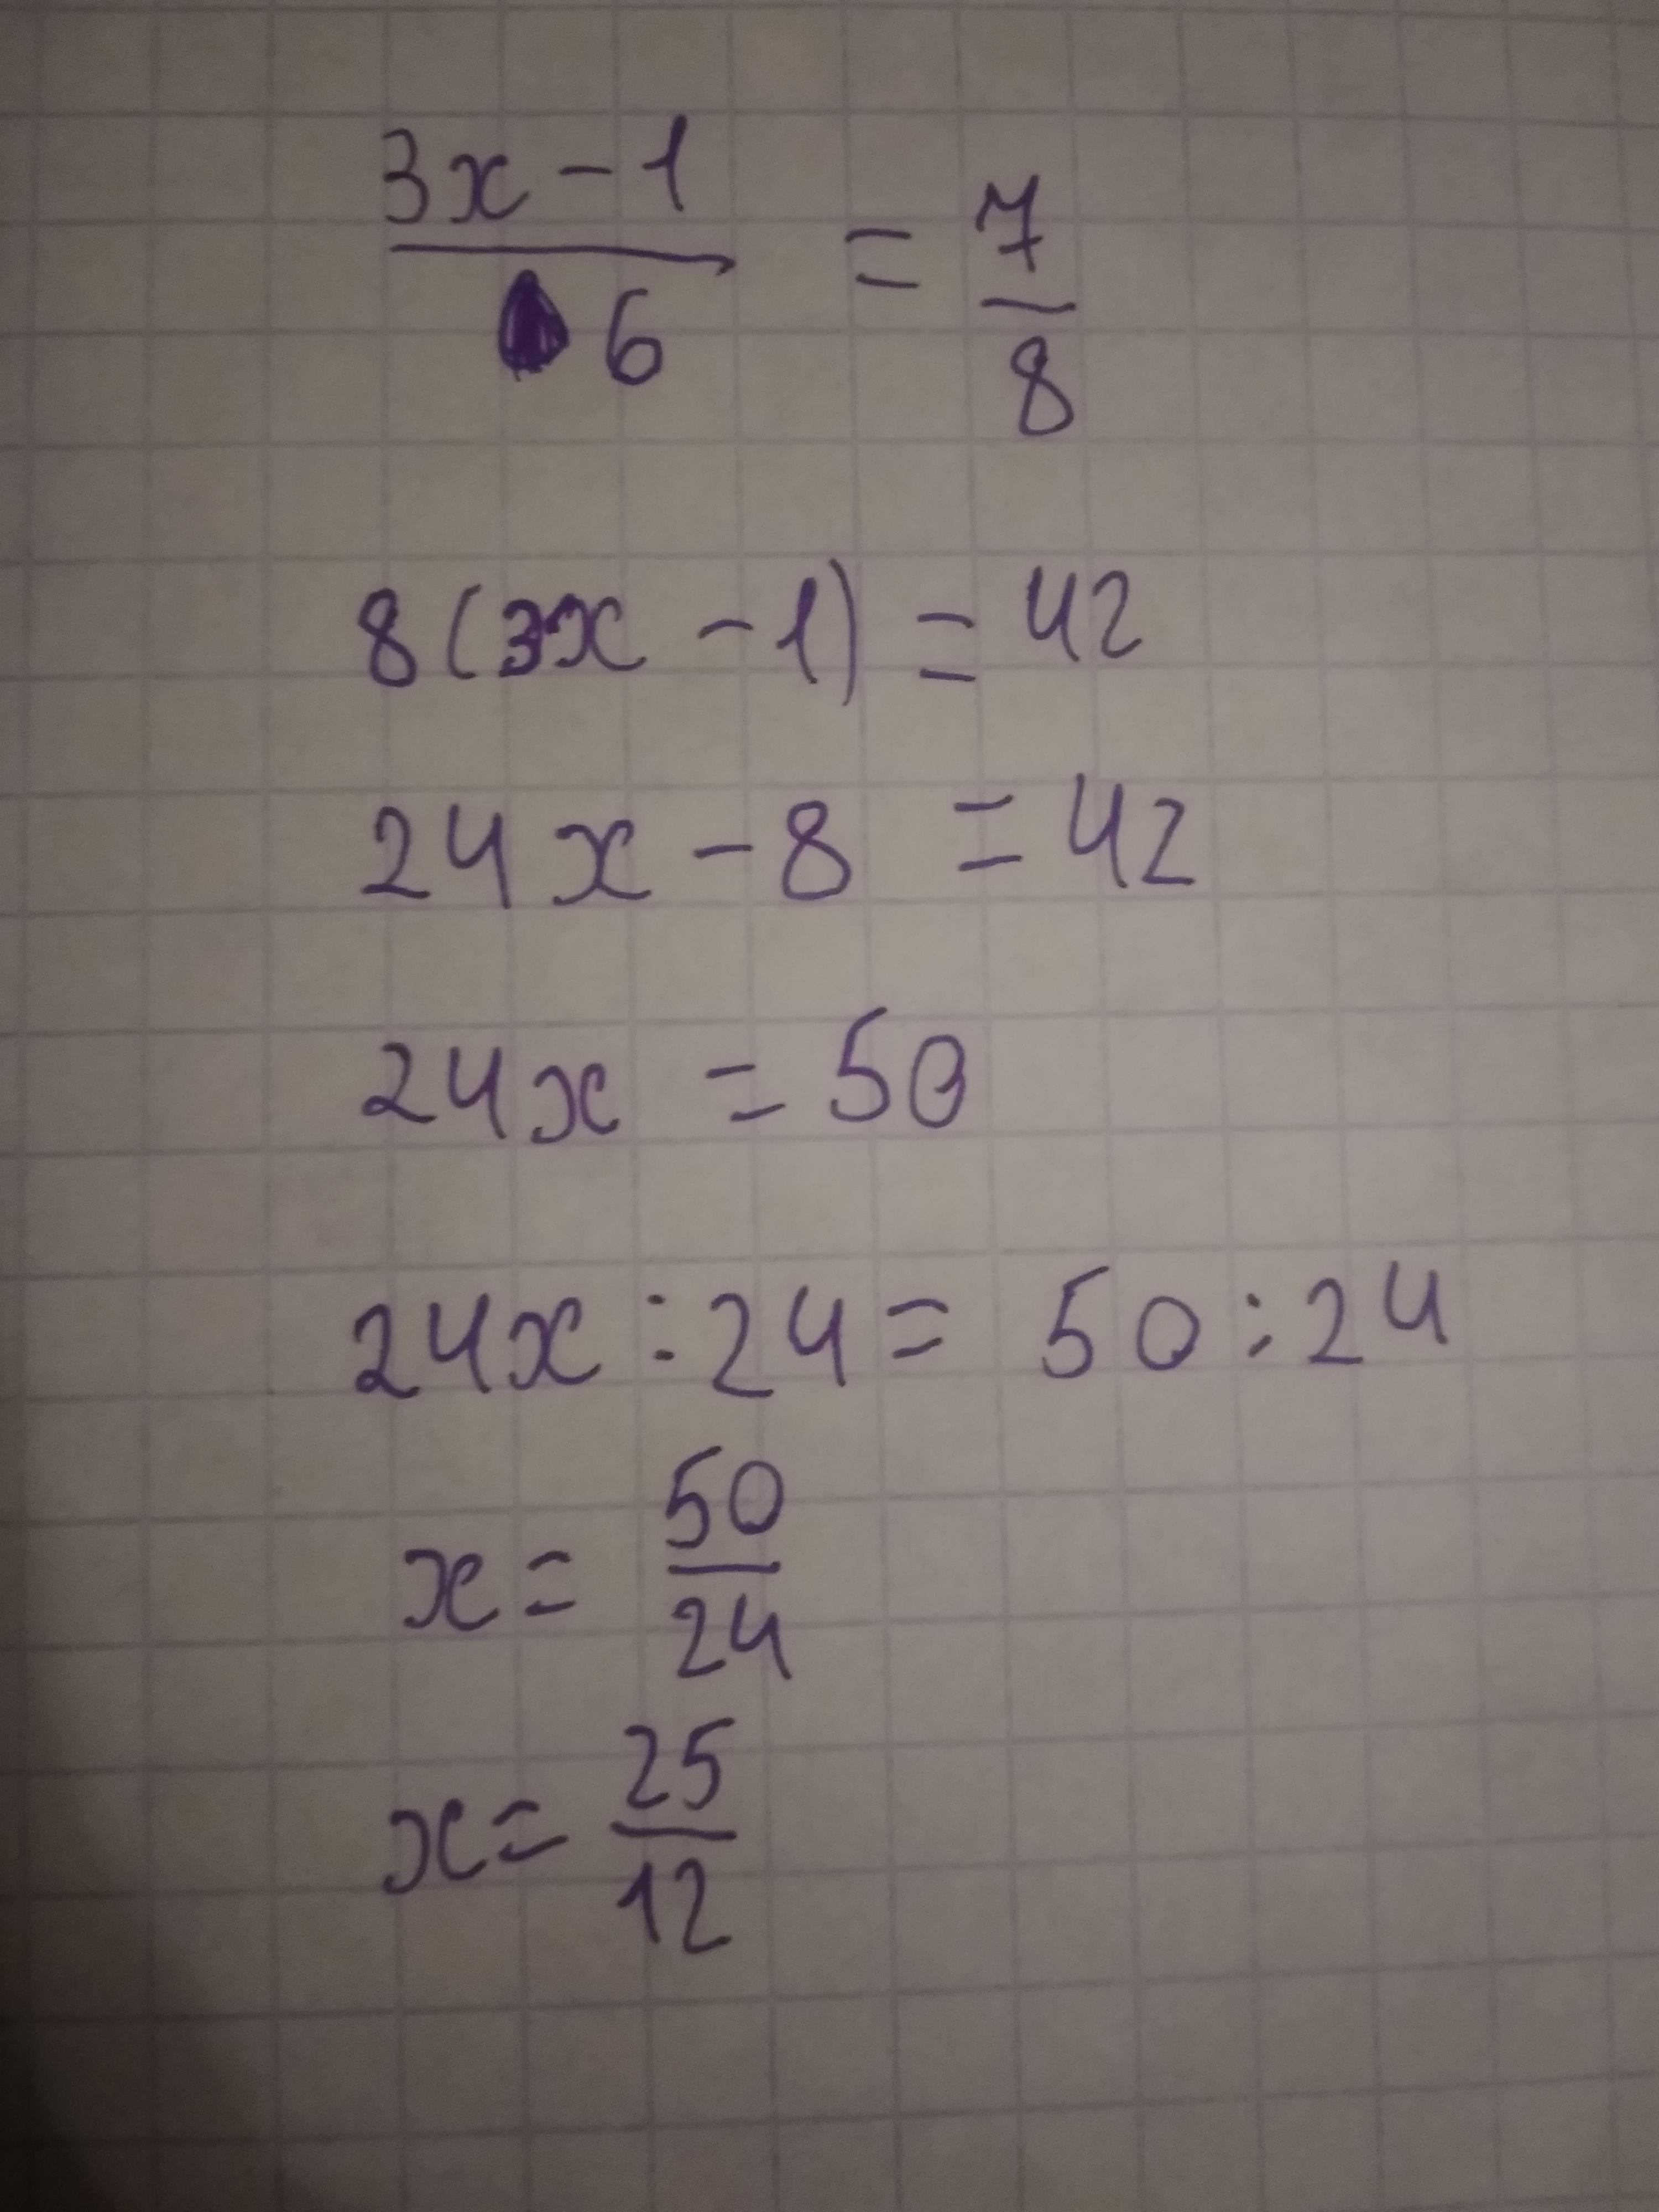 3x - 1
6
= 7
8
8(3x - 1) = 42
24x - 8 = 42
24x = 50
24x : 24 = 50 : 24
x = 50
24
x = 25
12